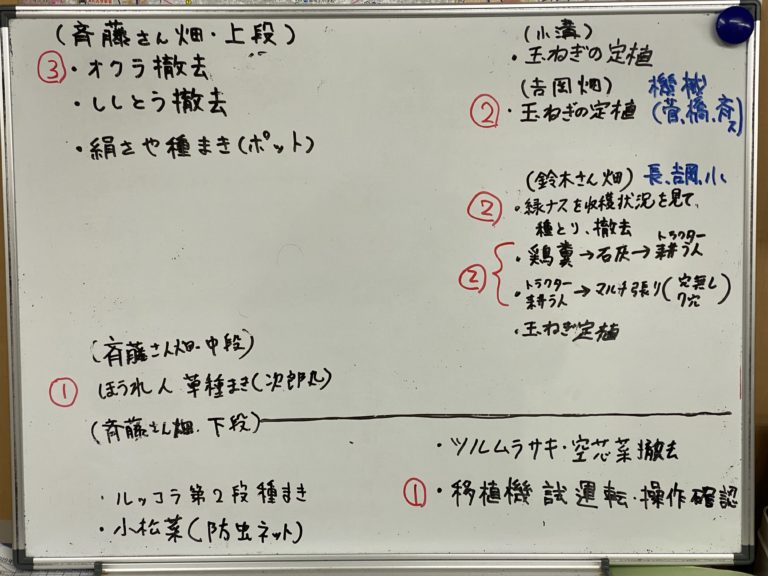 (斉藤さん畑・上段)
③・オクラ撤去
・ししとう撤去
・絹さや種まき(ポット)
(斉藤さん畑・中段)
① ほうれん草種まき(次郎丸)
(斉藤さん畑・下段)
・ルッコラ第2段種まき
・小松菜(防虫ネット)
(小溝)
・玉ねぎの定植
(吉岡畑) 機械
②・玉ねぎの定植 (菅、橋、斉ス)
(鈴木さん畑) 長、吉岡、小
②・緑ナスを収穫状況を見て、
種とり、撤去
②・鶏糞→石灰→トラクター耕うん
・トラクター耕うん→マルチ張り(穴無し 7穴)
・玉ねぎ定植
・ツルムラサキ・空芯菜撤去
①・移植機試運転・操作確認